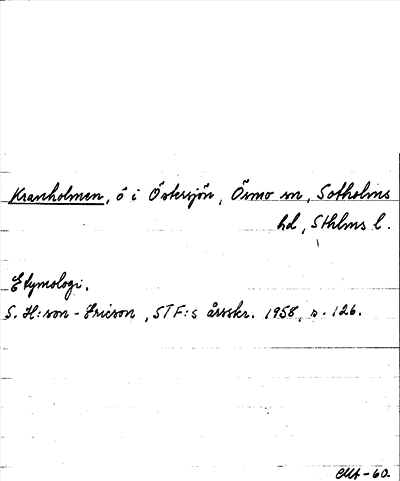 Kranholmen, ö i Östersjön, Ösmo sn, Sotholms
hd, Sthlms l.
Etymologi.
S. H:son-Ericson, STF:s årsskr. 1958, s. 126.
-60.